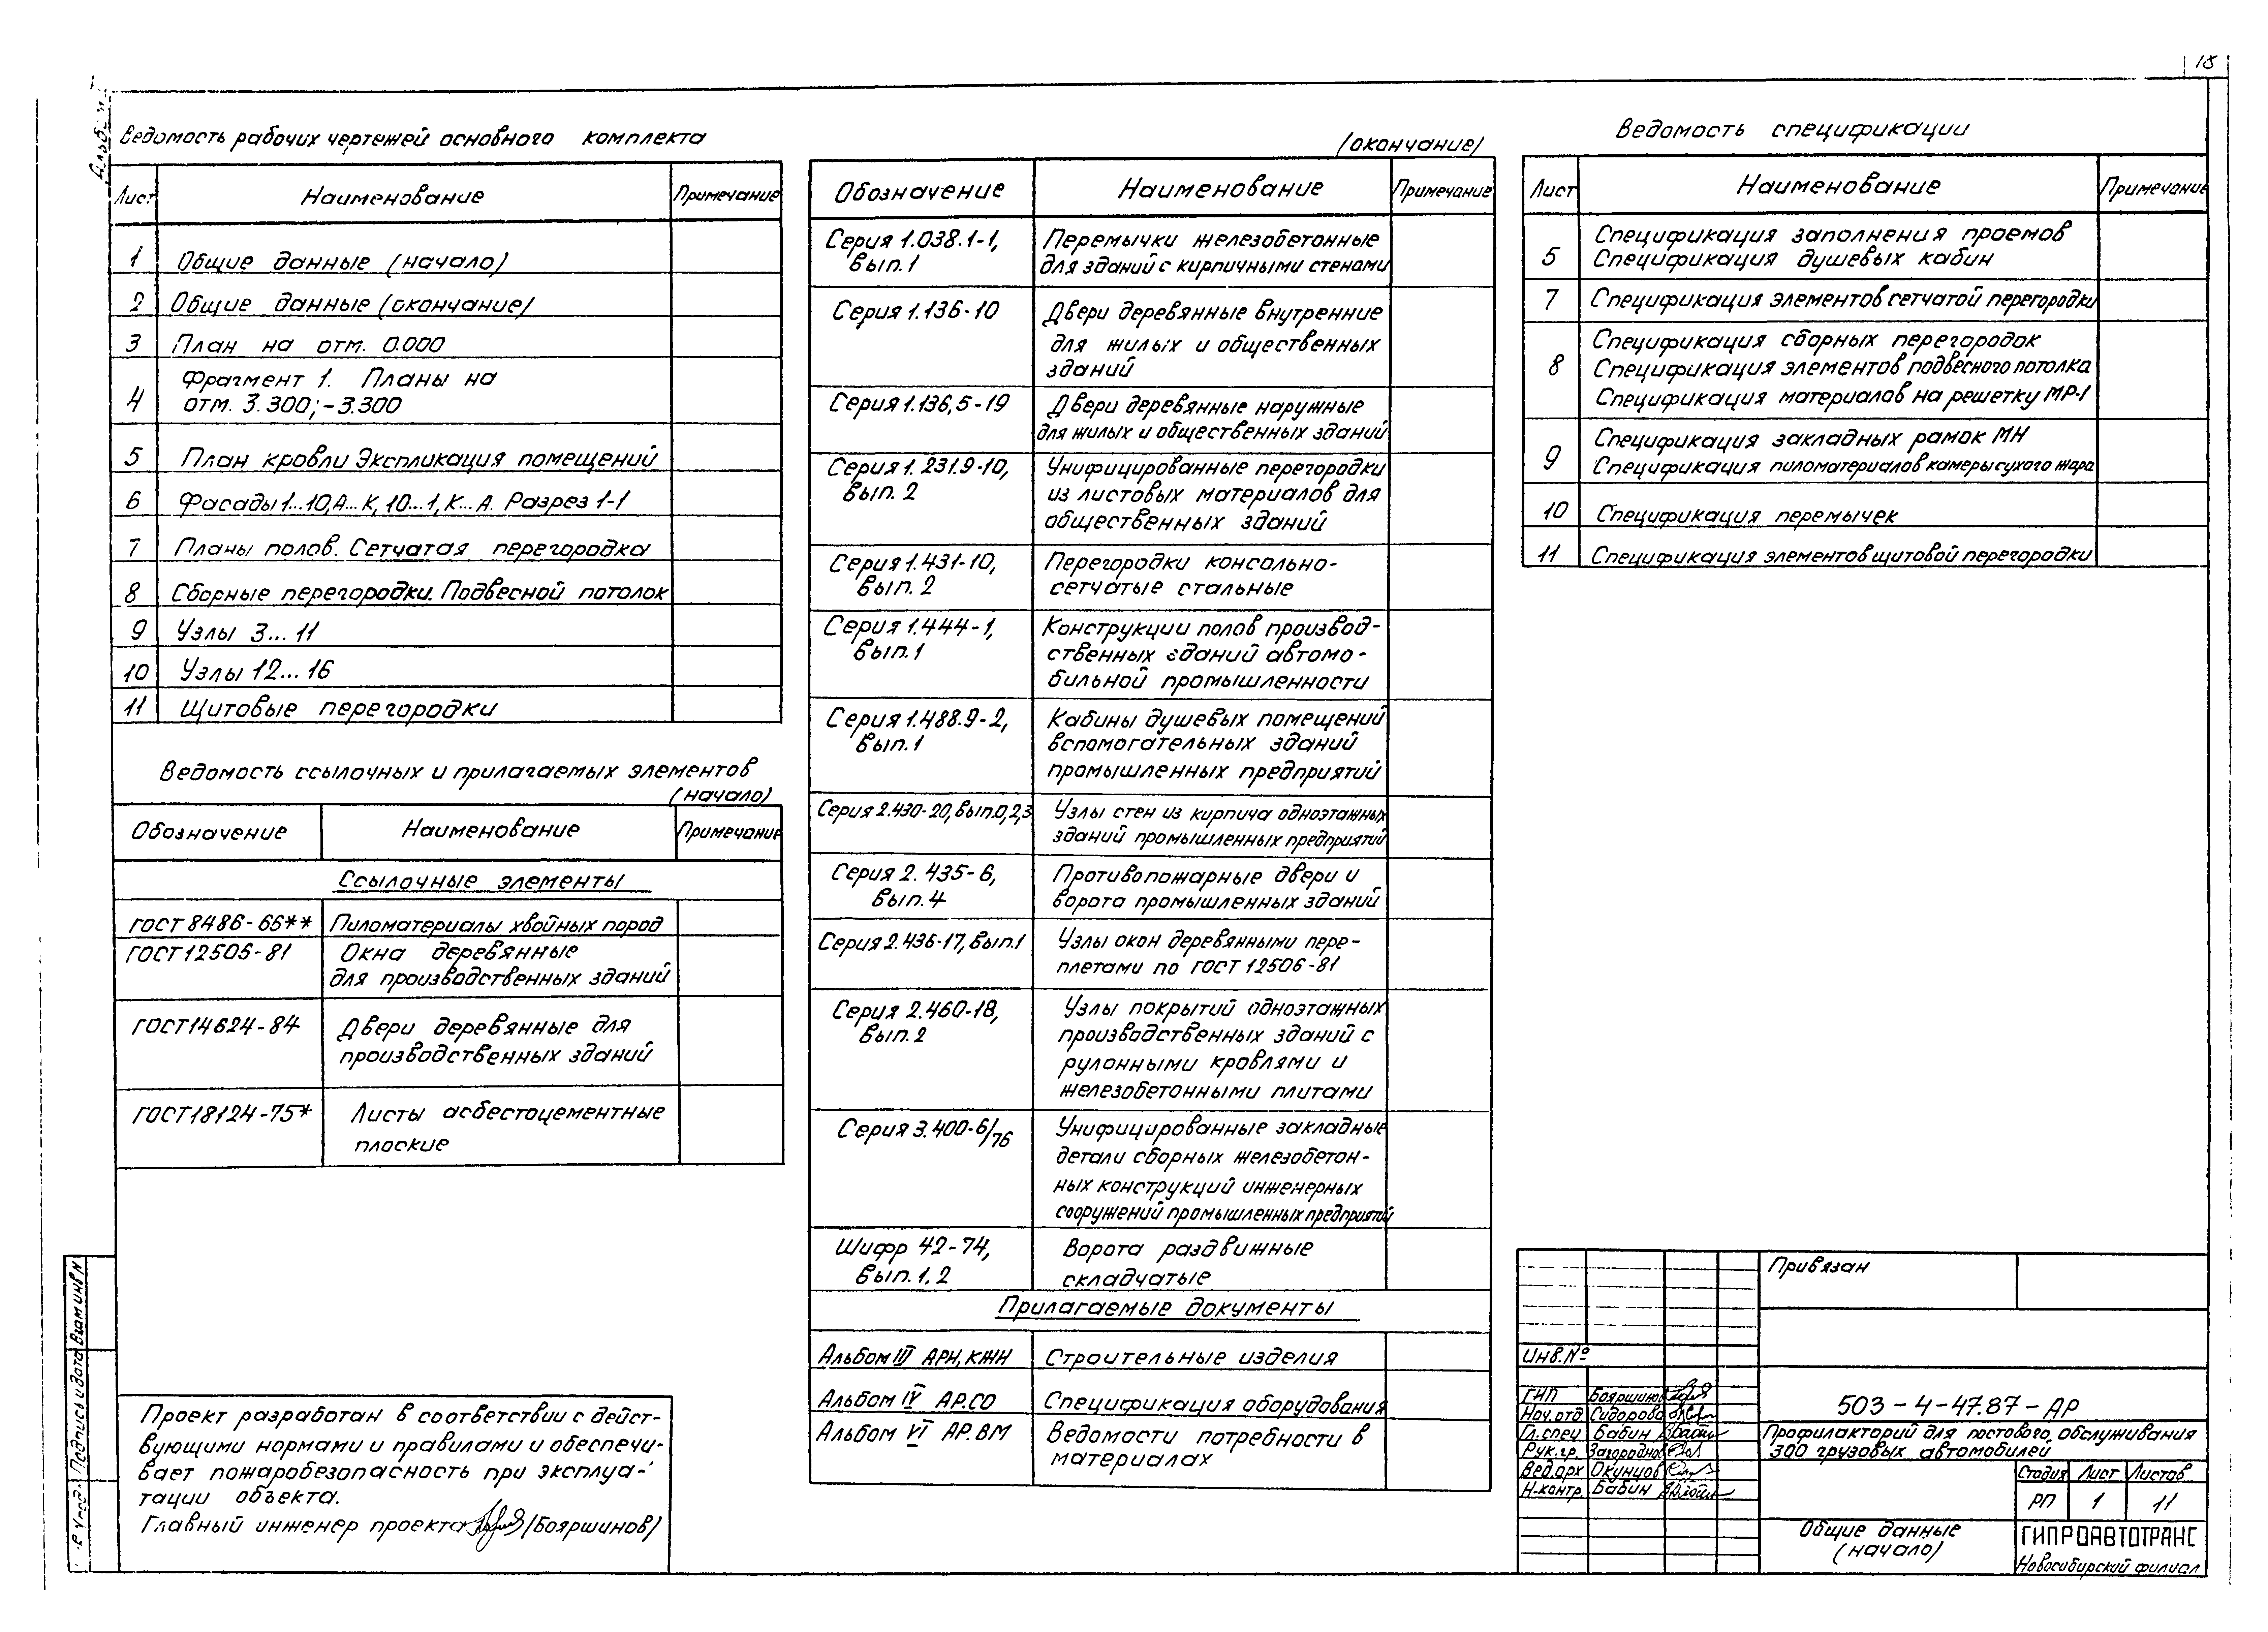 18
Альбом
Ведомость рабочих чертежей основного комплекта
Лист Наименование Примечание
1 Общие данные (начало)
2 Общие данные (окончание)
3 План на отм. 0.000
4 Фрагмент 1. Планы на
отм. 3.300; -3.300
5 План кровли Экспликация помещений
6 Фасады 1...10, А...К, 10...1, К...А. Разрез 1-1
7 Планы полов. Сетчатая перегородка
8 Сборные перегородки. Подвесной потолок
9 Узлы 3...11
10 Узлы 12...16
11 Щитовые перегородки
Ведомость ссылочных и прилагаемых элементов
(начало)
Обозначение Наименование Примечание
Ссылочные элементы
ГОСТ 8486-66** Пиломатериалы хвойных пород
ГОСТ 12506-81 Окна деревянные
для производственных зданий
ГОСТ 14624-84 Двери деревянные для
производственных зданий
ГОСТ 18124-75* Листы асбестоцементные
плоские
Проект разработан в соответствии с дейст-
вующими нормами и правилами и обеспечи-
вает пожаробезопасность при эксплуа-
тации объекта.
Главный инженер проекта (Бояршинов)
(окончание)
Обозначение Наименование Примечание
Серия 1.038.1-1, Перемычки железобетонные
вып. 1 для зданий с кирпичными стенами
Серия 1.136-10 Двери деревянные внутренние
для жилых и общественных
зданий
Серия 1.136,5-19 Двери деревянные наружные
для жилых и общественных зданий
Серия 1.231.9-10, Унифицированные перегородки
вып. 2 из листовых материалов для
общественных зданий
Серия 1.431-10, Перегородки консольно-
вып. 2 сетчатые стальные
Серия 1.444-1, Конструкции полов производ-
вып. 1 ственных зданий автомо-
бильной промышленности
Серия 1.488.9-2, Кабины душевых помещений
вып. 1 вспомогательных зданий
промышленных предприятий
Серия 2.430-20, вып.0,2,3 Узлы стен из кирпича одноэтажных
зданий промышленных предприятий
Серия 2.435-6, Противопожарные двери и
вып. 4 ворота промышленных зданий
Серия 2.436-17, вып.1 Узлы окон деревянными пере-
плетами по ГОСТ 12506-81
Серия 2.460-18, Узлы покрытий одноэтажных
вып. 2 производственных зданий с
рулонными кровлями и
железобетонными плитами
Серия 3.400-6/76 Унифицированные закладные
детали сборных железобетон-
ных конструкций инженерных
сооружений промышленных предприятий
Шифр 42-74, Ворота раздвижные
вып. 1, 2 складчатые
Прилагаемые документы
Альбом III АРИ, КЖИ Строительные изделия
Альбом IV АР.СО Спецификация оборудования
Альбом VI АР.ВМ Ведомости потребности в
материалах
Ведомость спецификации
Лист Наименование Примечание
5 Спецификация заполнения проемов
Спецификация душевых кабин
7 Спецификация элементов сетчатой перегородки
8 Спецификация сборных перегородок
Спецификация элементов подвесного потолка
Спецификация материалов на решетку МР-1
9 Спецификация закладных рамок МН
Спецификация пиломатериалов камеры сухого жара
10 Спецификация перемычек
11 Спецификация элементов щитовой перегородки
Привязан
Инв.№
ГИП Бояршинов
Нач.отд. Сидорова
Гл.спец Бабин
Рук.гр. Загороднов
Вед.арх Окунцов
Н-контр. Бабин
503-4-47.87-АР
Профилакторий для постового обслуживания
300 грузовых автомобилей
Стадия Лист Листов
РП 1 11
Общие данные
(начало)
ГИПРОАВТОТРАНС
Новосибирский филиал
Подпись и дата Взам инв N